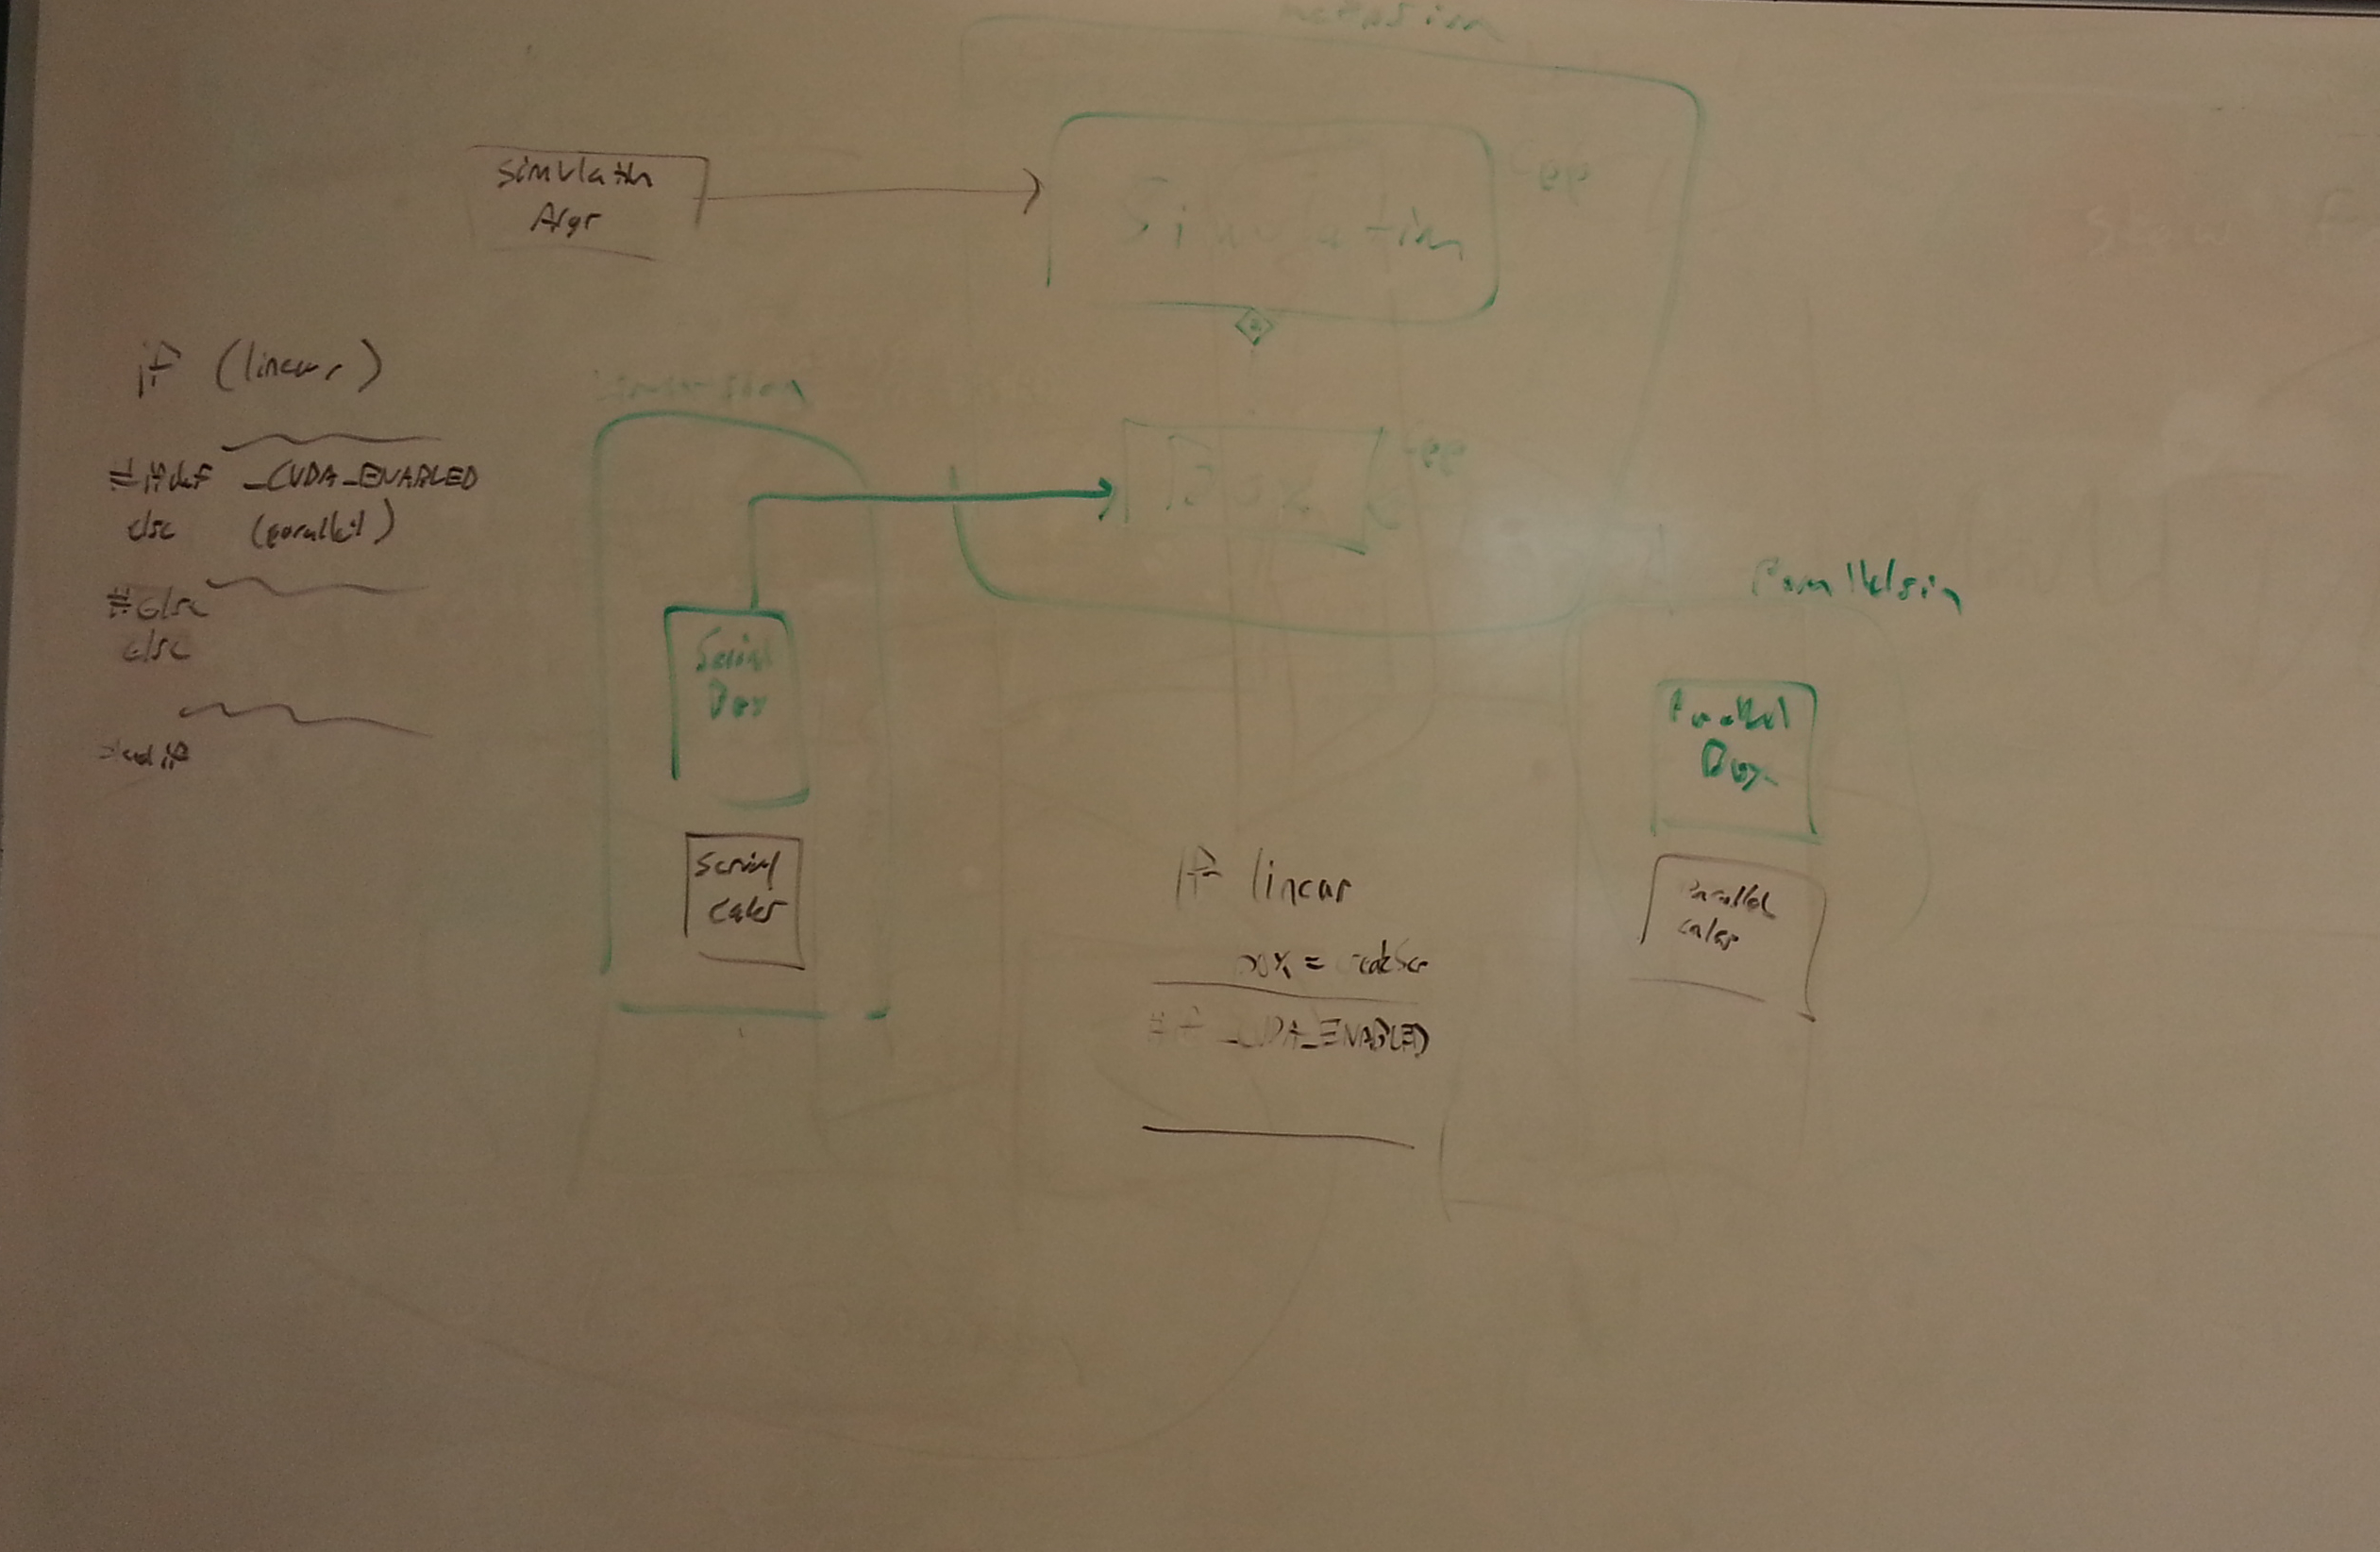 Simulation
Args
Simulation
if (linear)
#ifdef _CUDA_ENABLED
else (parallel)
#else
else
#endif
Box
Serial
Box
Serial
Calcs
ParallelSim
Parallel
Box
Parallel
Calcs
if linear
box =
_CUDA_ENABLED